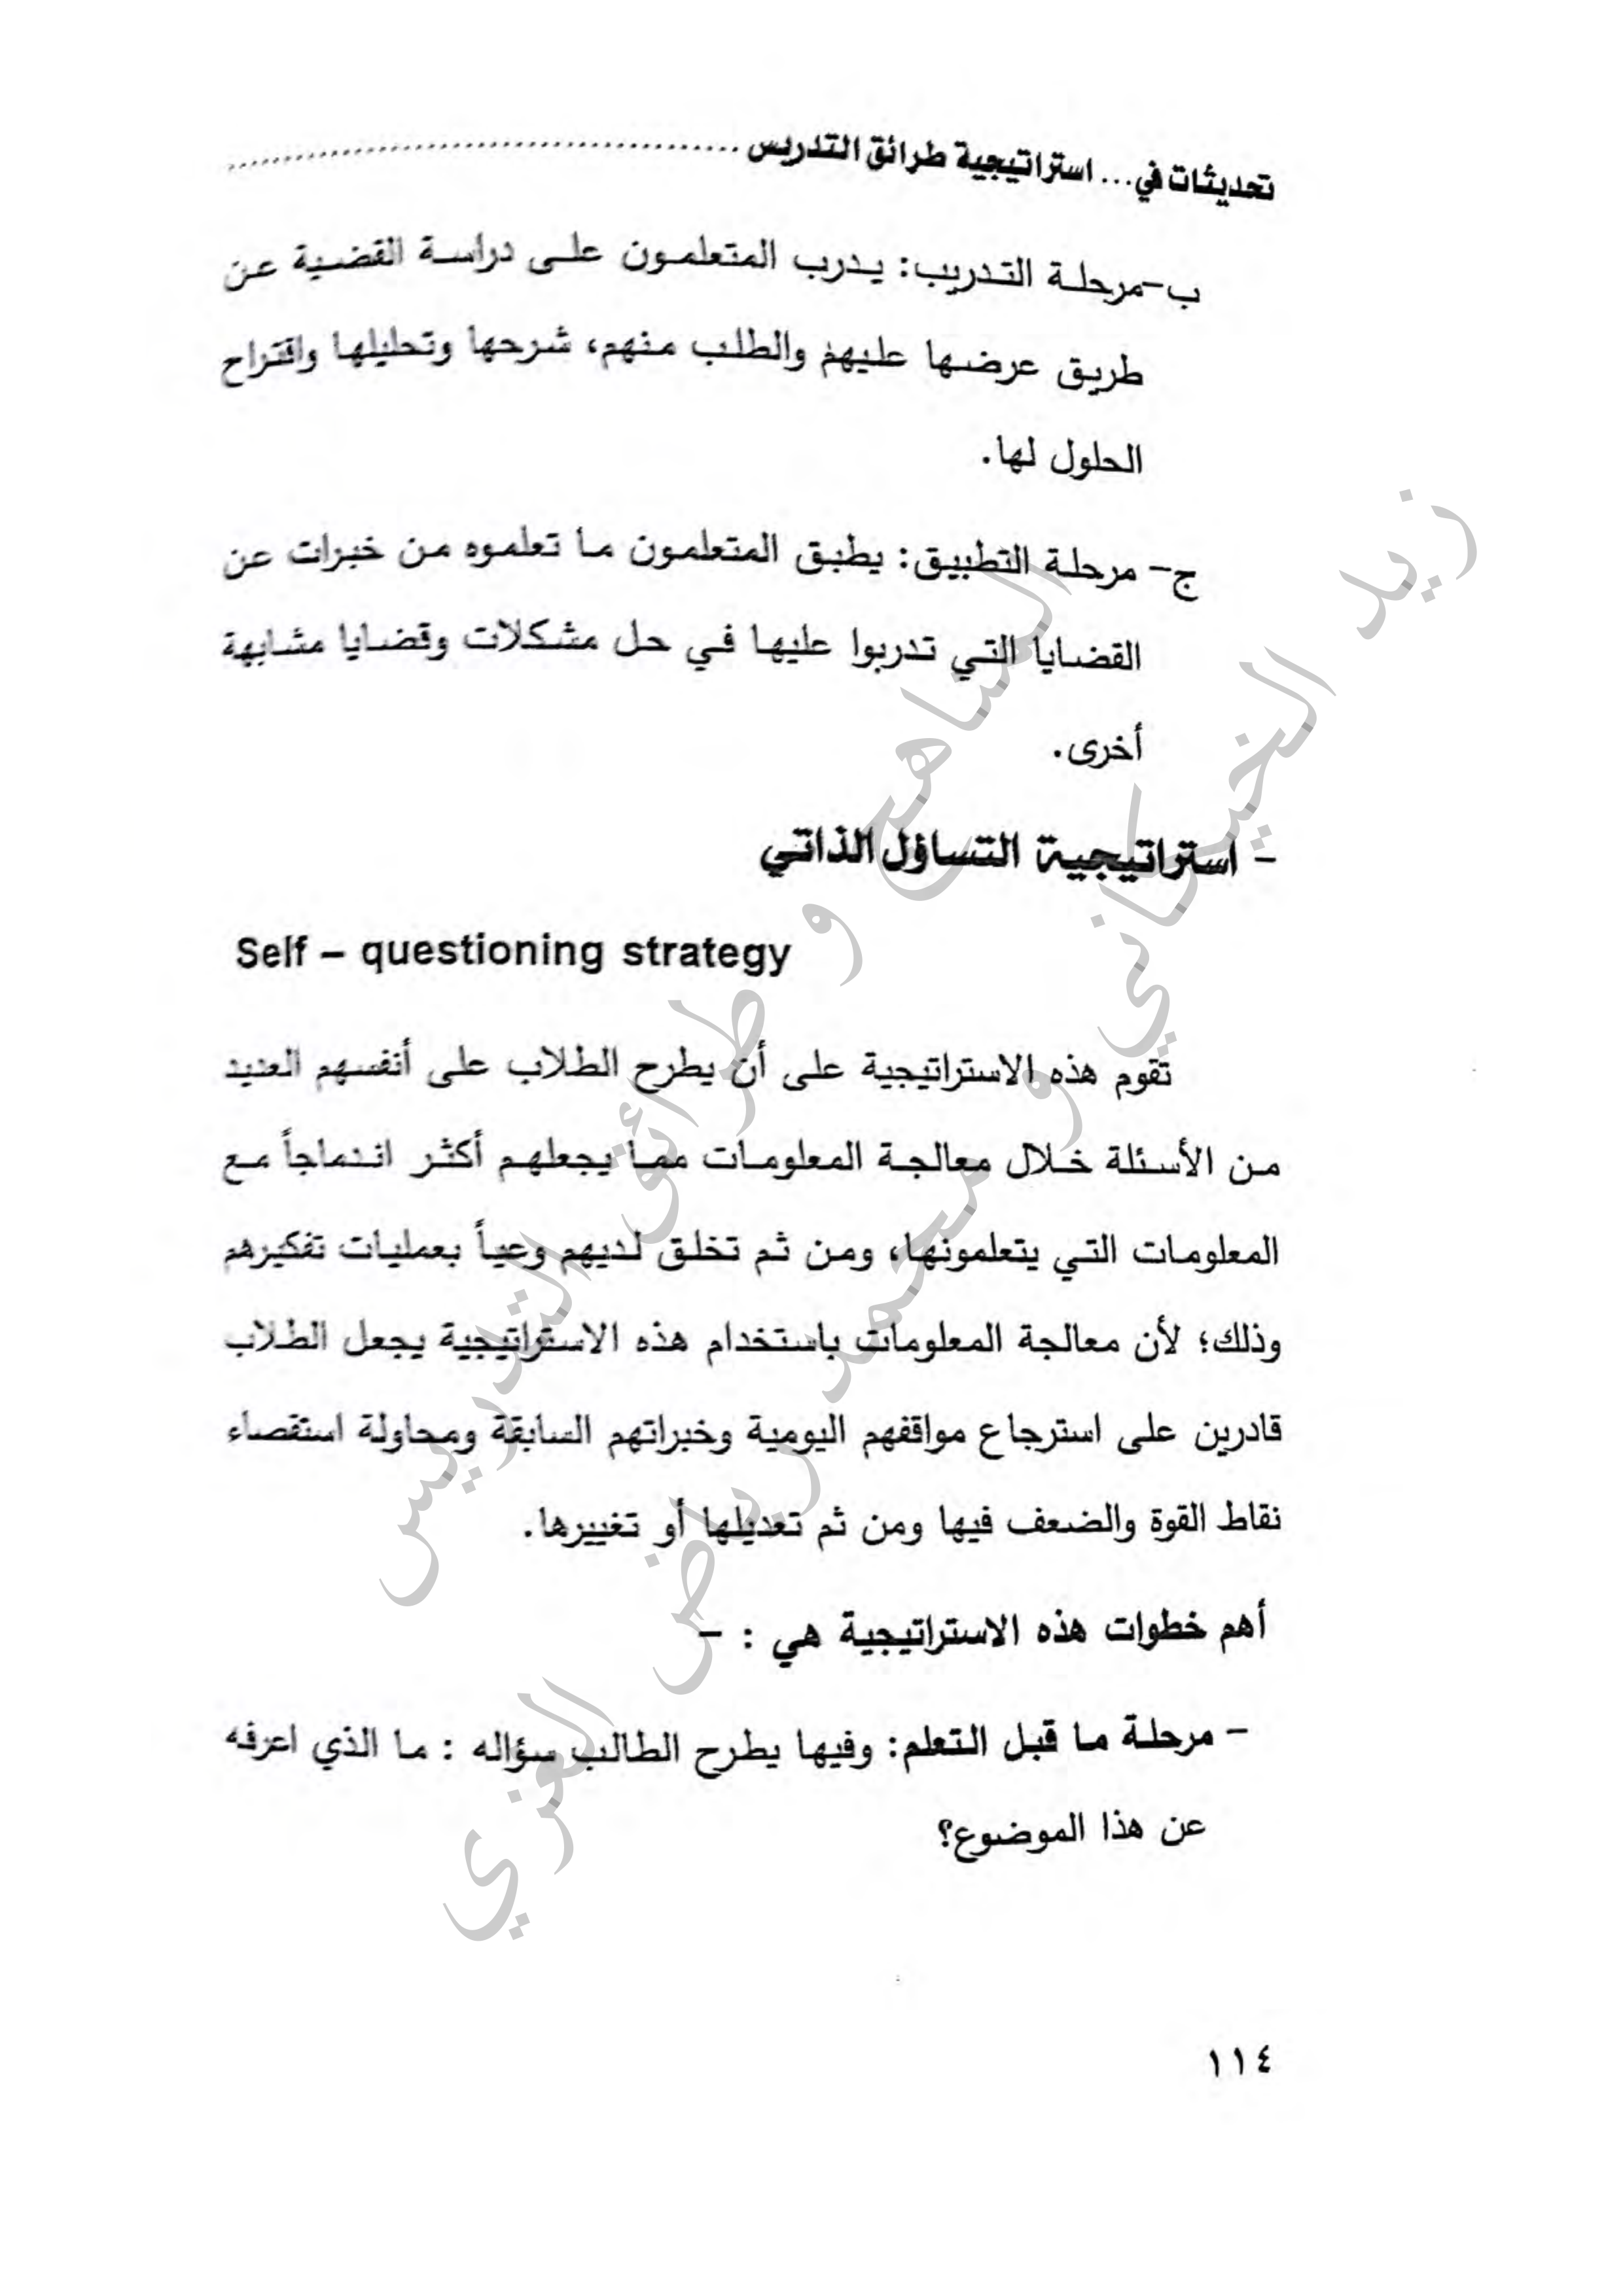 تحديثات في... استراتيجية طرائق التدريس
ب-مرحلة التدريب: يدرب المتعلمون على دراسة القضية عن
طريق عرضها عليهم والطلب منهم، شرحها وتحليلها واقتراح
الحلول لها.
ج- مرحلة التطبيق: يطبق المتعلمون ما تعلموه من خبرات عن
القضايا التي تدربوا عليها في حل مشكلات وقضايا مشابهة
أخرى.
- استراتيجية التساؤل الذاتي
Self – questioning strategy
تقوم هذه الاستراتيجية على أن يطرح الطلاب على أنفسهم العديد
من الأسئلة خلال معالجة المعلومات مما يجعلهم أكثر اندماجاً مع
المعلومات التي يتعلمونها، ومن ثم تخلق لديهم وعياً بعمليات تفكيرهم
وذلك؛ لأن معالجة المعلومات باستخدام هذه الاستراتيجية يجعل الطلاب
قادرين على استرجاع مواقفهم اليومية وخبراتهم السابقة ومحاولة استقصاء
نقاط القوة والضعف فيها ومن ثم تعديلها أو تغييرها.
أهم خطوات هذه الاستراتيجية هي : -
- مرحلة ما قبل التعلم: وفيها يطرح الطالب سؤاله : ما الذي اعرفه
عن هذا الموضوع؟
١١٤
المناهج و طرائق التدريس
زيد الخيكاني و محمد رياض العزي